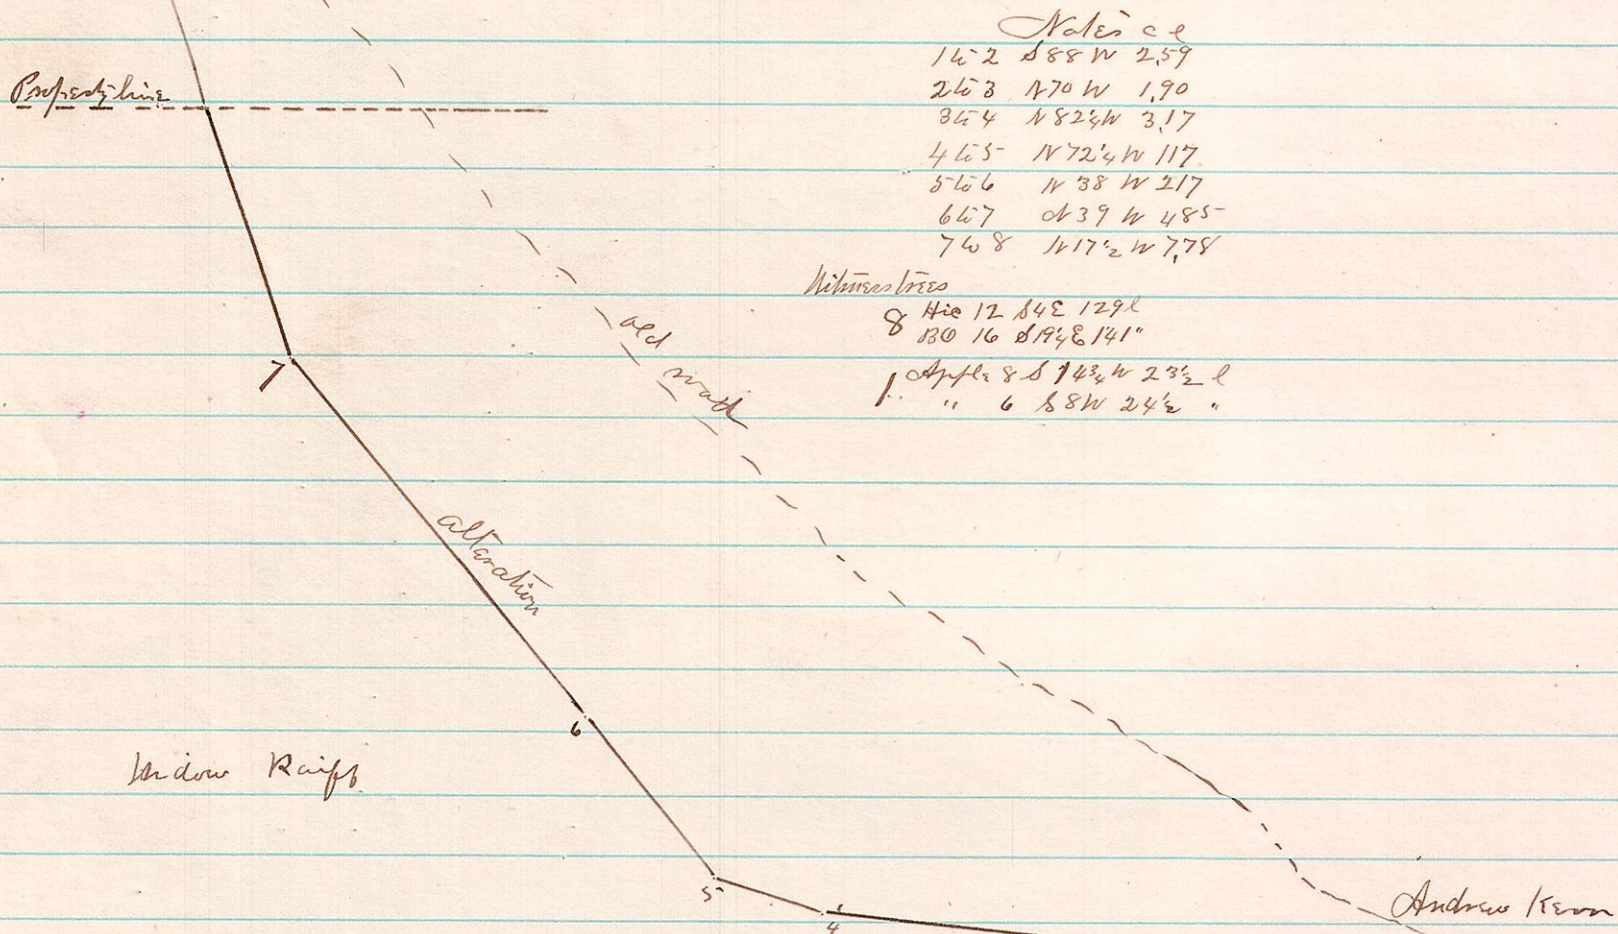 Notes c l
1 to 2 S 88 W 2.59
2 to 3 N 70 W 1.90
3 to 4 N 82¼ W 3.17
4 to 5 N 72¼ W 117
5 to 6 N 38 W 217
6 to 7 N 39 W 485
7 to 8 N 17½ W 7.78
Property line
Witness trees
8 Hic 12 S 4 E 129 l
BO 16 S 19¼ E 141 "
1. Apple 8 S 14¾ W 23½ l
" 6 S 8 W 24½ "
old road
7
alteration
6
Widow
5
4
Andrew Kern